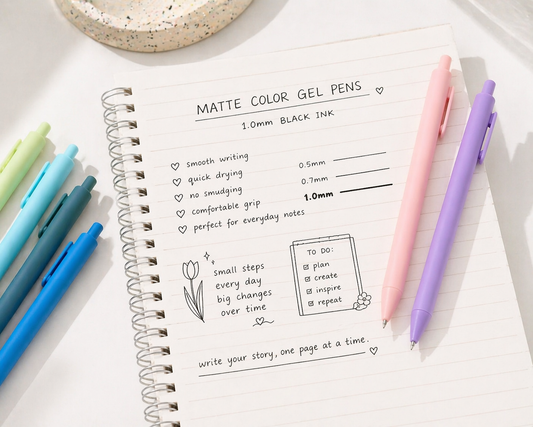 MATTE COLOR GEL PENS
1.0mm BLACK INK
smooth writing
quick drying
no smudging
comfortable grip
perfect for everyday notes
0.5mm
0.7mm
1.0mm
small steps
every day
big changes
over time
TO DO:
plan
create
inspire
repeat
write your story, one page at a time.